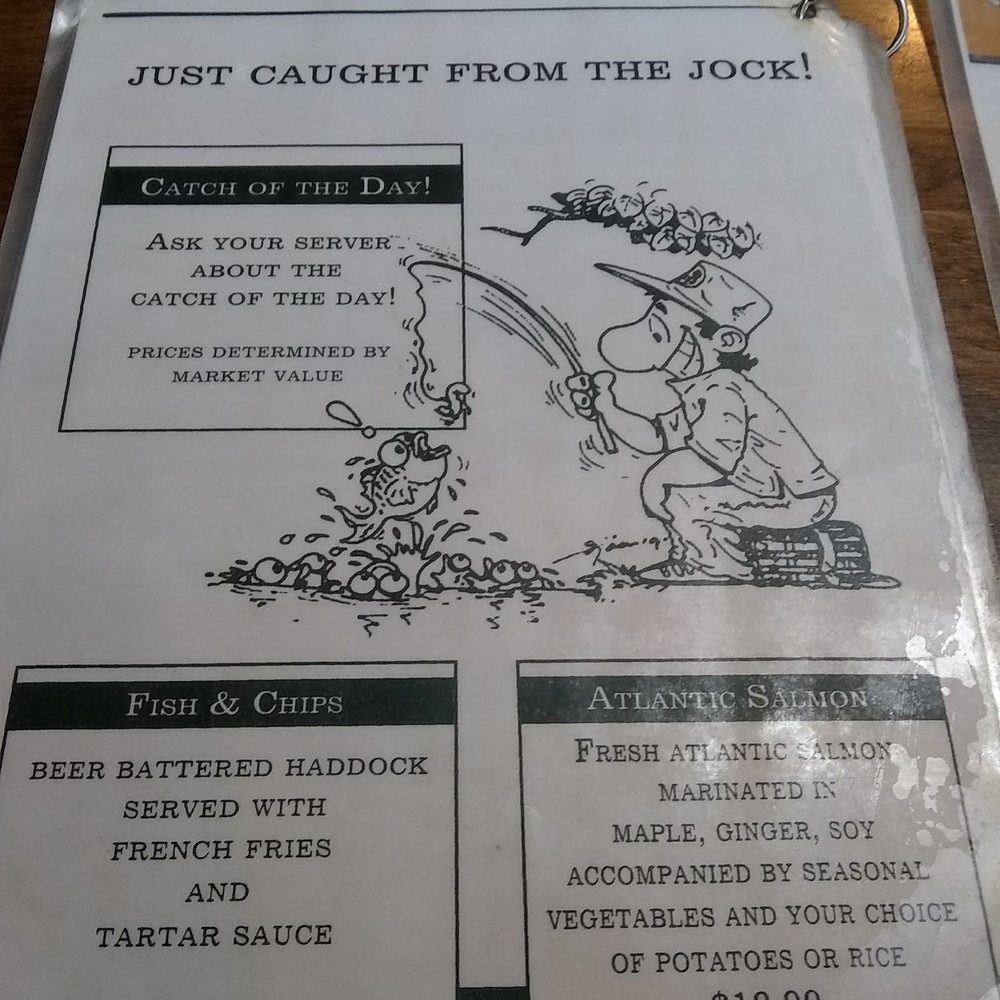 JUST CAUGHT FROM THE JOCK!
CATCH OF THE DAY!
ASK YOUR SERVER
ABOUT THE
CATCH OF THE DAY!
PRICES DETERMINED BY
MARKET VALUE
FISH & CHIPS
BEER BATTERED HADDOCK
SERVED WITH
FRENCH FRIES
AND
TARTAR SAUCE
ATLANTIC SALMON
FRESH ATLANTIC SALMON
MARINATED IN
MAPLE, GINGER, SOY
ACCOMPANIED BY SEASONAL
VEGETABLES AND YOUR CHOICE
OF POTATOES OR RICE